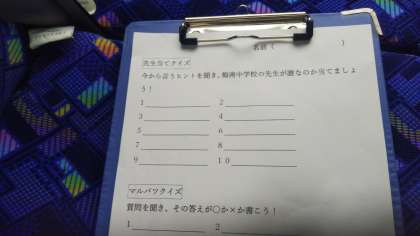 名前（　　　　　　）
先生当てクイズ
今から言うヒントを聞き、梅湾中学校の先生が誰なのか当てましょ
う！
1 2
3 4
5 6
7 8
9 10
マルバツクイズ
質問を聞き、その答えが○か×か書こう！
1 2